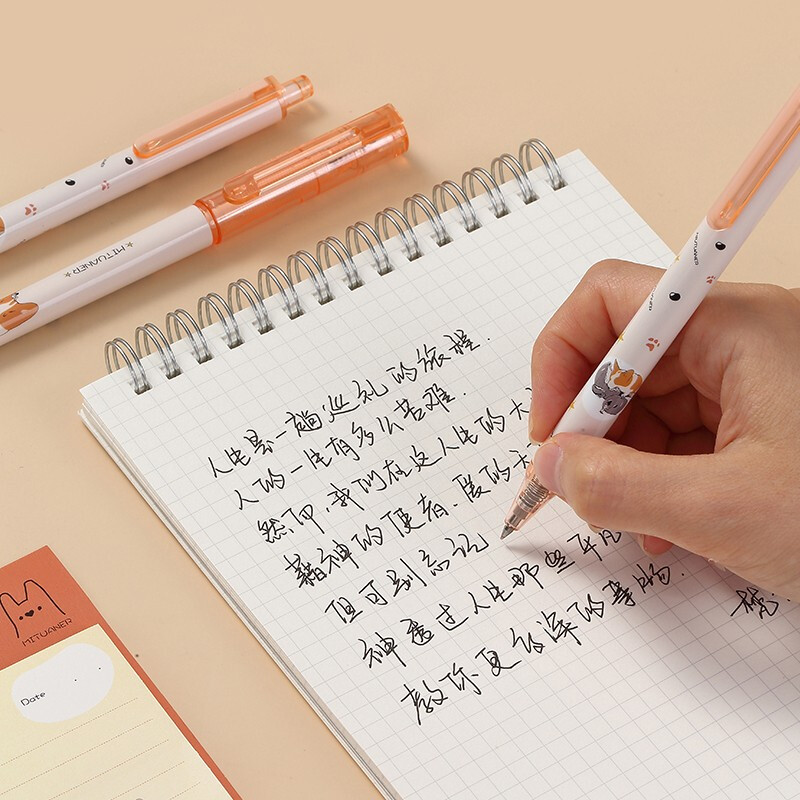 MITUANER
人生是一趟巡礼的旅程.
人的一生有多么苦难.
然而,我们在这人生的大
藉神的
但可别忘记
神透过人生那些平凡
教你更 深的事物.
MITUANER
Date